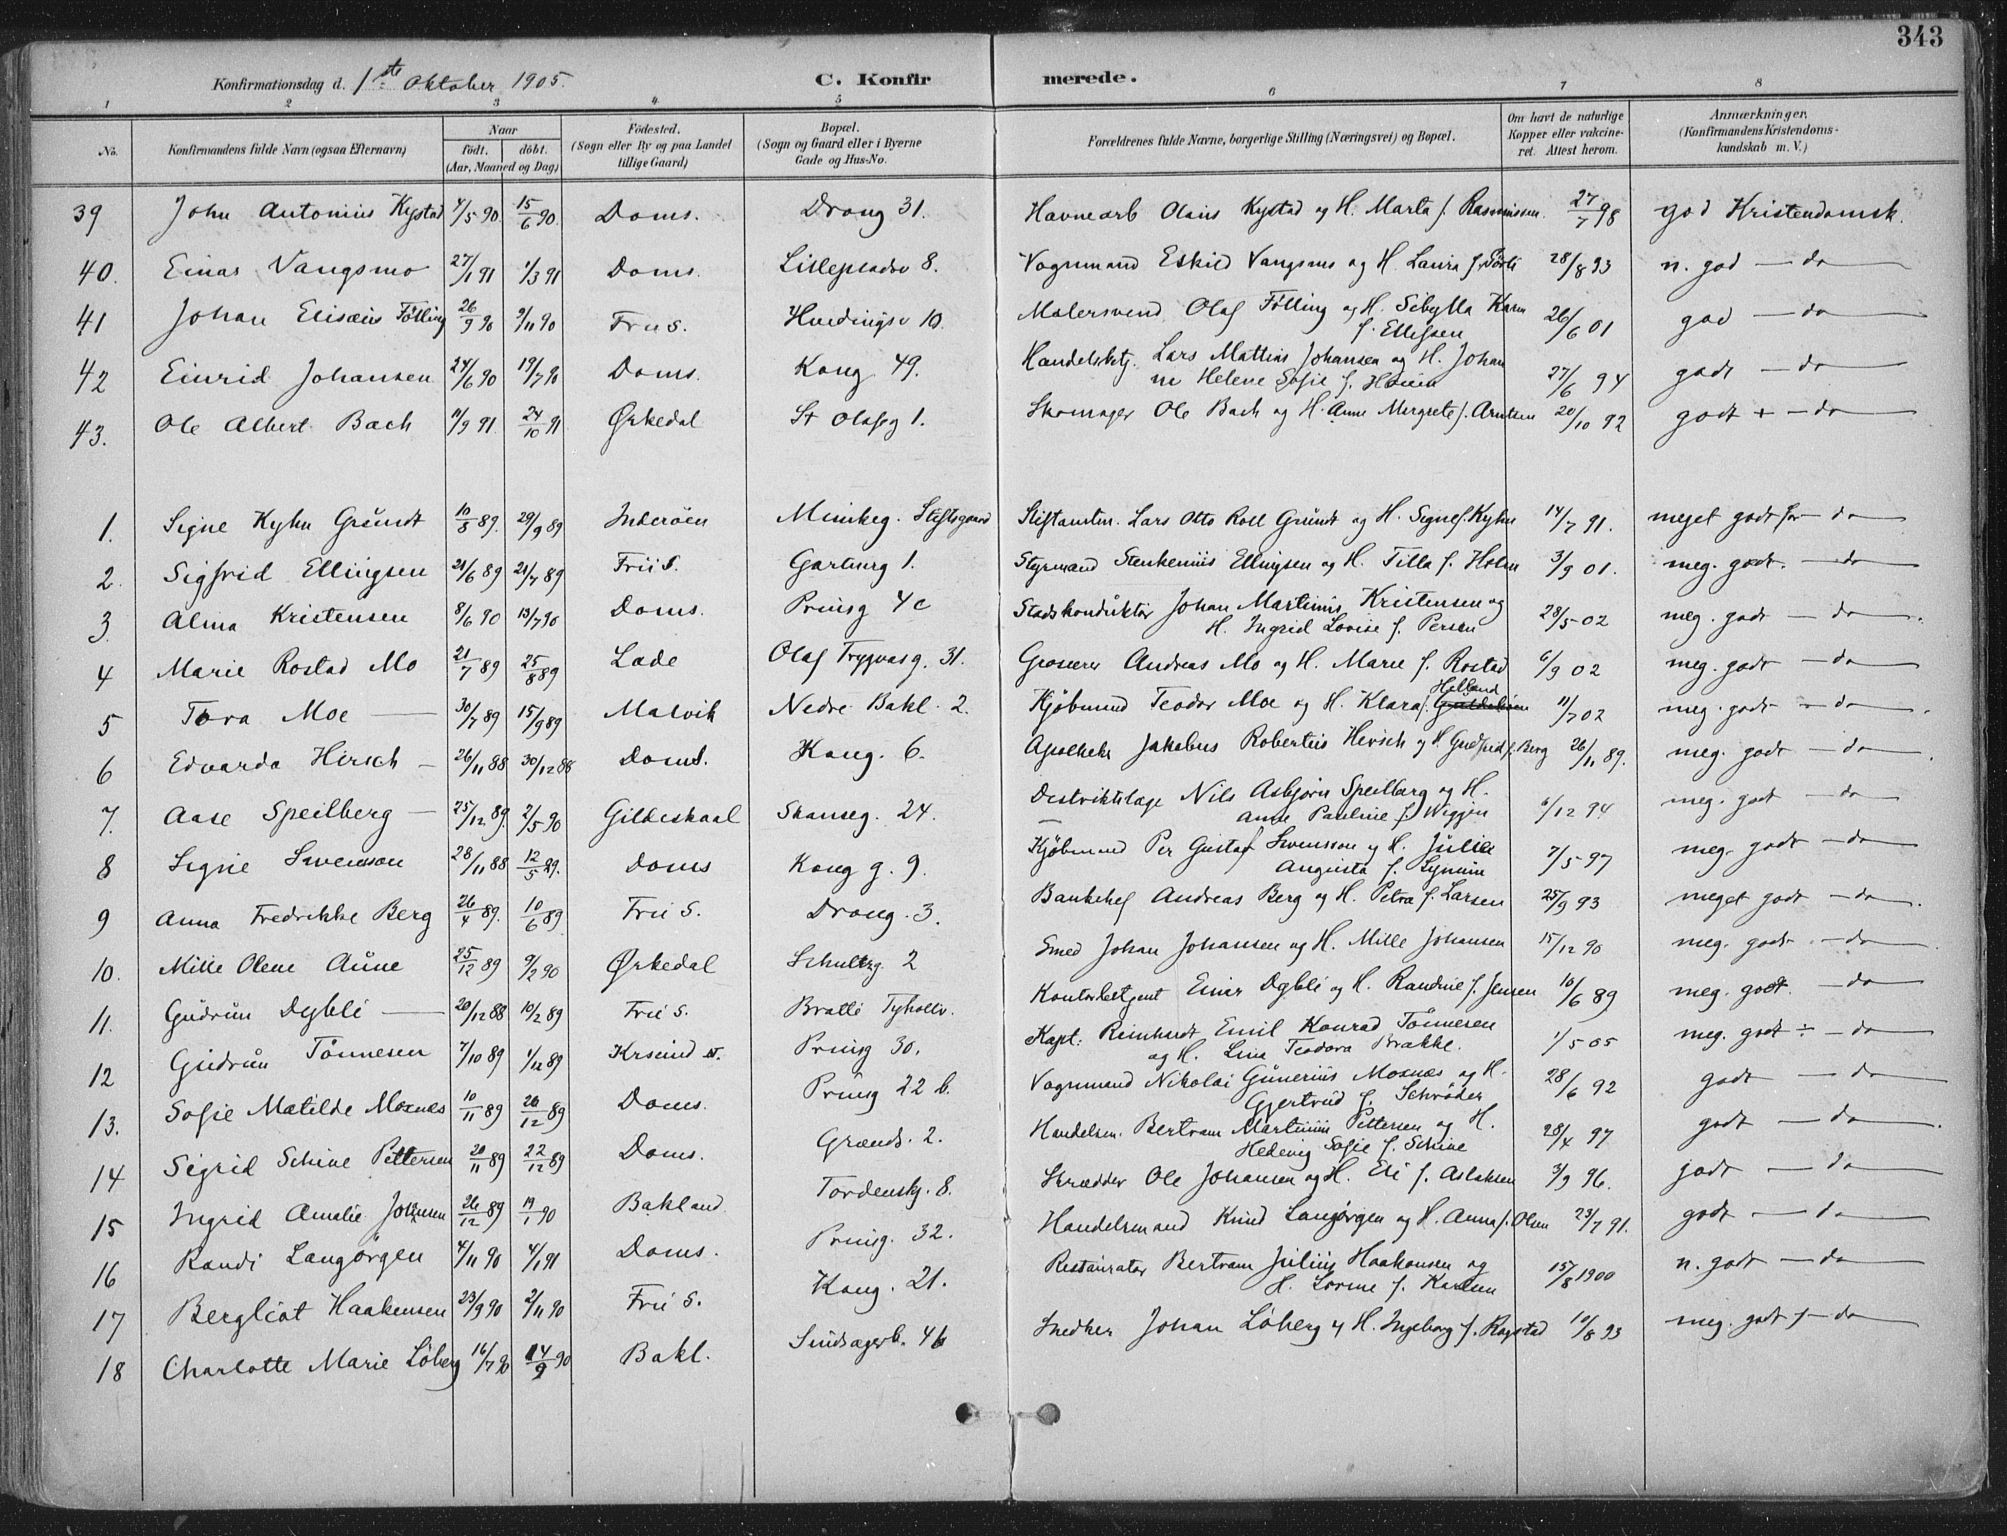 343
Konfirmationsdag d. 1ste Oktober 1905. C. Konfirmerede.
1 2 3 4 5 6 7 8
No. Konfirmandens fulde Navn (ogsaa Efternavn) Naar født. døbt. (Aar, Maaned og Dag) Fødested. (Sogn eller By og paa Landet tillige Gaard) Bopæl. (Sogn og Gaard eller i Byerne Gade og Hus-No. Forældrenes fulde Navne, borgerlige Stilling (Næringsvei) og Bopæl. Om havt de naturlige Kopper eller vakcineret. Attest herom. Anmærkninger, (Konfirmandens Kristendomskundskab m. V.)
39 John Antonius Kystad 4/5 90 15/6 90 Doms. Drong 31. Havnearb Olaus Kystad og H. Marta f. Rasmussen 27/7 98 god Kristendomsk.
40. Einar Vangsmo 27/1 91 1/3 91 Doms. 8. Vognmand Eskild Vangsmo og H. Laura f. 28/8 93 n. god — do
41 Johan Elisæus Følling 26/9 90 9/11 90 Fru S. 10. Malersvend Olaf Følling og H. Sibylla Karn
f. Ellefsen 26/6 01 god — do
42 Einrid Johansen 24/6 90 19/7 90 Doms. Kong 49. Handelsbetj. Lars Mattias Johansen og H. Johan
ne Helene Sofie f. 27/6 94 godt — do
43. Ole Albert Bach 11/9 91 24/10 91 Ørkedal St Olafsg 1. Skomager Ole Bach og H. Anne Mergrete f. Arntsen 20/10 92 godt + — do
1. Signe Kyhn Grundt 10/8 89. 29/9 89 Inderøen Munkeg. Stiftsgaard Stiftamtm. Lars Otto Roll Grundt og H. Signe f. Kyhn 14/7 91. meget godt for — do
2. Sigfrid Ellingsen 21/6 89 21/7 89 Frii S. 1. Styrmand Ellingsen og H. Tilla f. Holm 3/9 01. meg. godt. — do
3. Alma Kristensen 8/6 90 13/7 90 Doms. Prinsg 4c Stadskonduktør Johan Martinus Kristensen og
H. Ingrid Lovise f. Persen 28/5 02 meg. godt — do
4 Marie Rostad Mo 21/7 89 25/8 89 Lade Olaf Trygvasg. 31. Grosserer Andreas Mo og H. Marie f. Rostad 6/9 02 meg. godt — do
5 Tora Moe — 30/7 89 15/9 89 Malvik Nedre Bakl. 2. Kjøbmand Teodor Moe og H. Klara f. Helland 11/7 02 meg. godt — do
6 Edvarda Hirsch — 26/11 88 30/12 88 Doms. Kong. 6. Apotheker Jakobus Robertus Hirsch og H. Gudfrid f. Berg 26/11 89. meg. godt — do
7. Aase Speilberg — 25/12 89. 2/5 90 Gildeskaal Skanseg. 24. Distriktslæge Nils Asbjørn Speilberg og H.
Anne Pauline f. Wiggen 6/12 94 meg. godt — do
8 Signe Swensson 28/11 88 12/5 89. Doms Kong g. 9. Kjøbmand Per Gustaf Swensson og H. Julie
Augusta f. 7/5 97 meg. godt — do
9 Anna Fredrikke Berg 26/4 89. 10/6 89 Frii S. Drong. 3. Bankchef Andreas Berg og H. Petra f. Larsen 25/9 93 meget godt — do
10. Mille Olene Aune 25/12 89 9/2 90 Ørkedal Schultzg. 2 Smed Johan Johansen og H. Mille Johansen 15/12 90 meg. godt. — do
11. Gudrun Dybli — 20/12 88 10/2 89 Frii S. Bratli Tyholtv. Kontorbetjent Einar Dybli og H. Randine f. Jensen 10/6 89 meg. godt. — do
12 Gudrun Tønnesen 7/10 89 1/12 89 Krsund N. Prinsg 30. Kapt: Reinhardt Emil Konrad Tønnesen
og H. Lina Teodora Brække. 1/5 05 meg. godt ÷ — do
13. Sofie Matilde Moxnes 10/11 89 26/12 89 Doms. Prinsg 22 b. Vognmand Nikolai Gunerius Moxnæs og H.
Gjertrud f. Schrøder 28/6 92 godt — do
14 Sigrid Schive Pettersen 20/11 89 22/12 89 Doms. Grænds. 2. Handelsm. Bertram Martinius Pettersen og H.
Hedevig Sofie f. Schive 28/4 97 godt — do
15 Ingrid Amalie Johansen 26/12 89 19/1 90 Bakland Tordenskj. 8. Skrædder Ole Johansen og H. Eli f. Aslaksen 3/9 96. godt — do
16 Randi Langørgen 4/11 90 4/1 91 Doms. Prinsg. 32. Handelsmand Knud Langørgen og H. Anna f. Olsen 23/7 91. godt — do
17 Bergliot Haakensen 23/9 90 2/11 90 Frii S. Kong. 21. Restauratør Bertram Julius Haakonsen og
H. Lovine f. Karlsen 15/8 1900 n. godt — do
18 Charlotte Marie Løberg 16/7 90 14/9 90 Bakl. 46 Snedker Johan Løberg og H. Ingeborg f. Rogstad 10/8 93 meg. godt — do